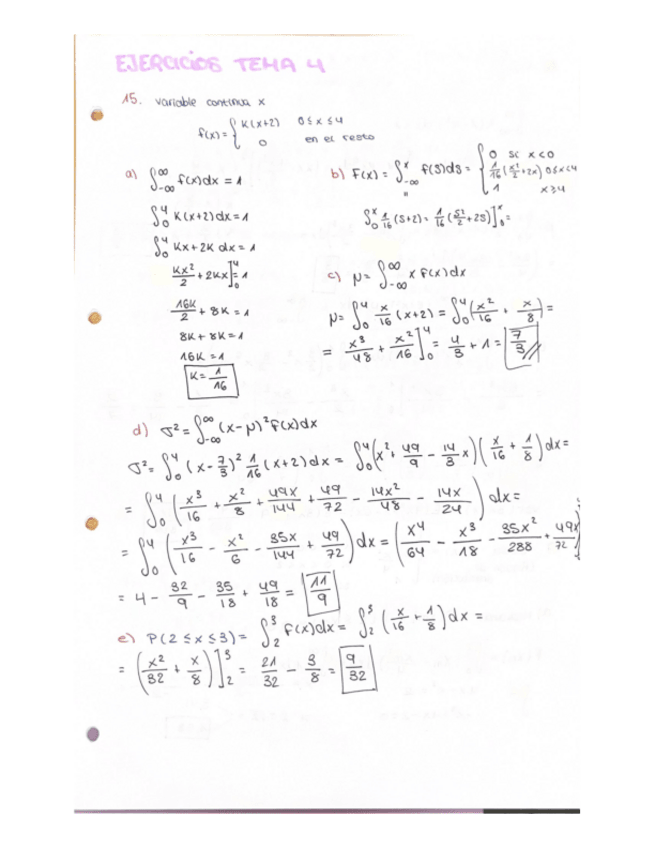 EJERCICIOS TEMA 4
15. variable continua x
f(x) = { K(x+2) 0 ≤ x ≤ 4
0 en el resto
a) ∫_{-∞}^{∞} f(x)dx = 1
∫_0^4 K(x+2)dx = 1
∫_0^4 Kx + 2K dx = 1
Kx²/2 + 2Kx ]_0^4 = 1
16K/2 + 8K = 1
8K + 8K = 1
16K = 1
K = 1/16
b) F(x) = ∫_{-∞}^x f(s)ds = { 0 si x<0
1/16 (x²/2 + 2x) 0≤x<4
1 x≥4
∫_0^x 1/16 (s+2) = 1/16 (s²/2 + 2s) ]_0^x =
c) μ = ∫_{-∞}^{∞} x f(x)dx
μ = ∫_0^4 x/16 (x+2) = ∫_0^4 (x²/16 + x/8) =
= x³/48 + x²/16 ]_0^4 = 4/3 + 1 = 7/3
d) σ² = ∫_{-∞}^{∞} (x-μ)² f(x)dx
σ² = ∫_0^4 (x - 7/3)² 1/16 (x+2)dx = ∫_0^4 (x² + 49/9 - 14/3 x)(x/16 + 1/8)dx =
= ∫_0^4 (x³/16 + x²/8 + 49x/144 + 49/72 - 14x²/48 - 14x/24) dx =
= ∫_0^4 (x³/16 - x²/6 - 35x/144 + 49/72) dx = (x⁴/64 - x³/18 - 35x²/288 + 49x/72)
= 4 - 32/9 - 35/18 + 49/18 = 11/9
e) P(2 ≤ x ≤ 3) = ∫_2^3 f(x)dx = ∫_2^3 (x/16 + 1/8)dx =
= (x²/32 + x/8) ]_2^3 = 21/32 - 3/8 = 9/32